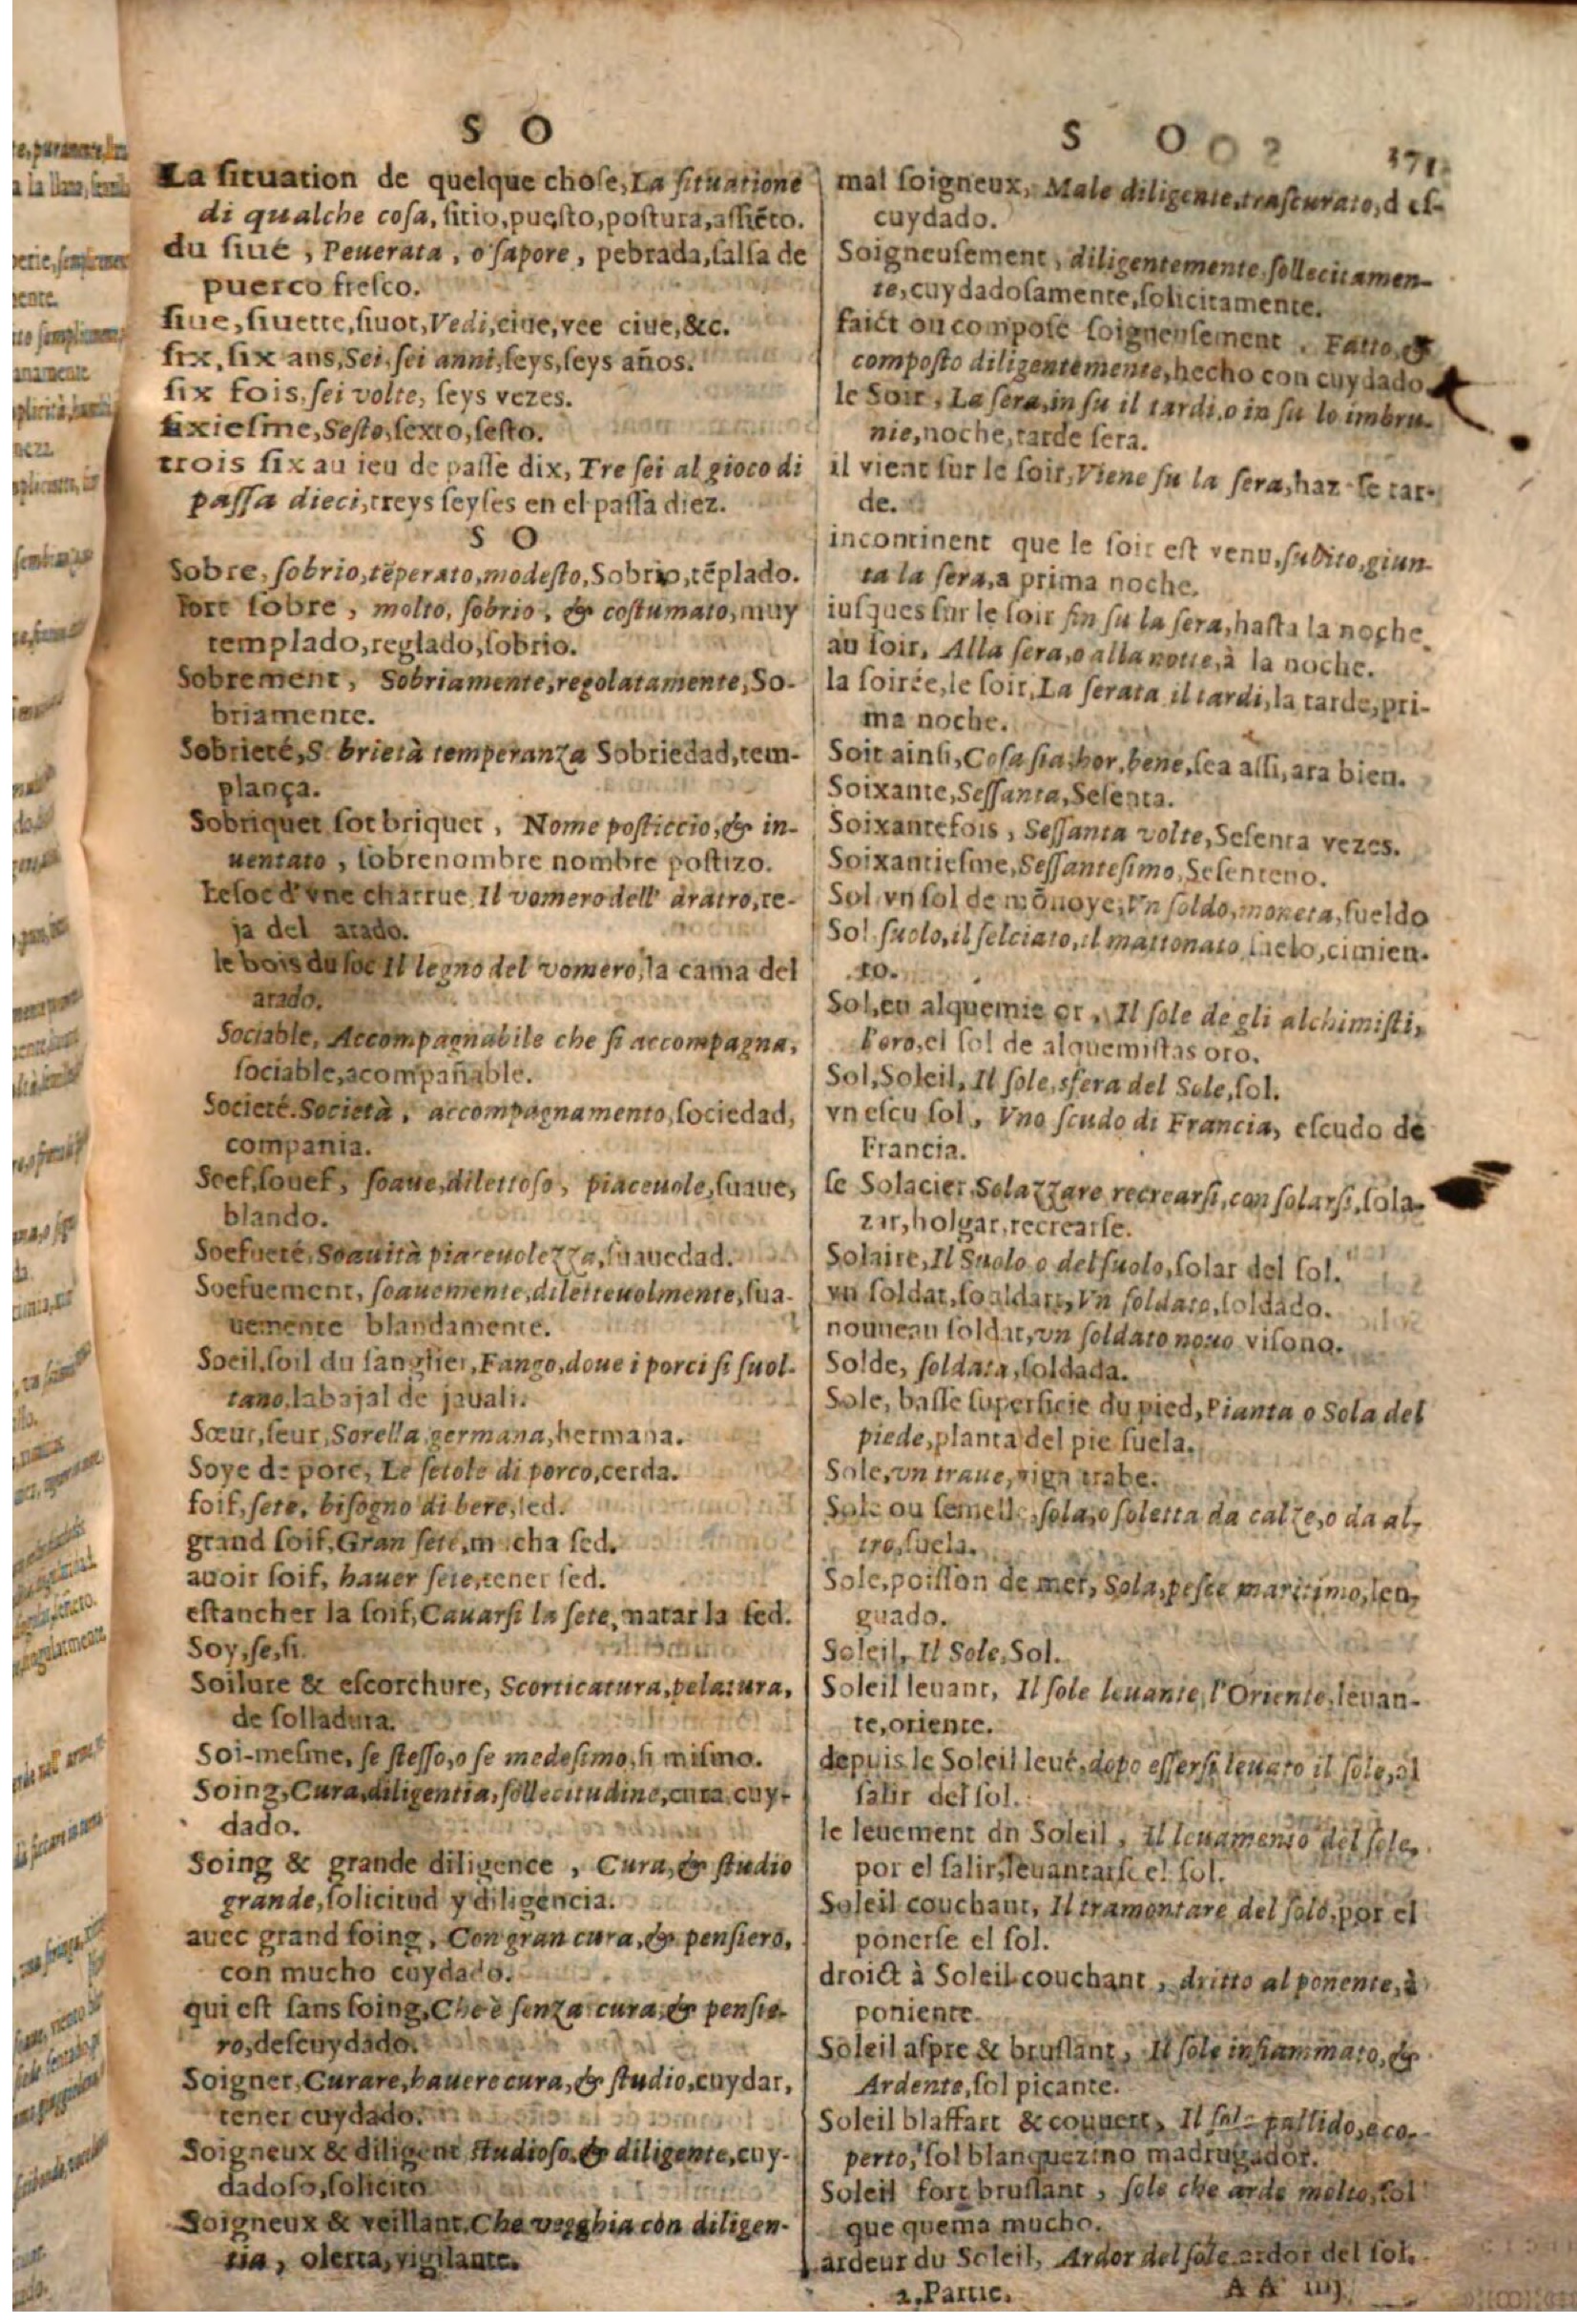 S O
La situation de quelque chose, La situatione
di qualche cosa, sitio, puesto, postura, assiẽto.
du siué, Peuerata, o sapore, pebrada, salsa de
puerco fresco.
siue, siuette, siuot, Vedi, ciue, vee ciue, &c.
six, six ans, Sei, sei anni, seys, seys años.
six fois, sei volte, seys vezes.
sixiesme, Sesto, sexto, sesto.
trois six au ieu de passe dix, Tre sei al gioco di
passa dieci, treys seyses en el passa diez.
S O
Sobre, sobrio, tẽperato, modesto, Sobrio, tẽplado.
fort sobre, molto, sobrio, & costumato, muy
templado, reglado, sobrio.
Sobrement, Sobriamente, regolatamente, So-
briamente.
Sobrieté, S brietà temperanza Sobriedad, tem-
plança.
Sobriquet sot briquet, Nome posticcio, & in-
uentato, sobrenombre nombre postizo.
Le soc d'vne charrue Il vomero dell' aratro, re-
ja del arado.
le bois du soc Il legno del vomero, la cama del
arado.
Sociable, Accompagnabile che si accompagna,
sociable, acompañable.
Societé. Società, accompagnamento, sociedad,
compania.
Soef, souef, soaue, dilettoso, piaceuole, suaue,
blando.
Soefueté, Soauità piaceuolezza, suauedad.
Soefuement, soauemente, diletteuolmente, sua-
uemente blandamente.
Soeil, soil du sanglier, Fango, doue i porci si suol-
tano, labajal de jauali.
Sœur, seur, Sorella germana, hermana.
Soye de porc, Le setole di porco, cerda.
soif, sete, bisogno di bere, sed.
grand soif, Gran sete, m cha sed.
auoir soif, hauer sete, tener sed.
estancher la soif, Cauarsi la sete, matar la sed.
Soy, se, si.
Soilure & escorchure, Scorticatura, pelatura,
de solladura.
Soi-mesme, se stesso, o se medesimo, si mismo.
Soing, Cura, diligentia, sollecitudine, cura, cuy-
dado.
Soing & grande diligence, Cura, & studio
grande, solicitud y diligencia.
auec grand soing, Con gran cura, & pensiero,
con mucho cuydado.
qui est sans soing, Che è senza cura, & pensie-
ro, descuydado.
Soigner, Curare, hauere cura, & studio, cuydar,
tener cuydado.
Soigneux & diligent studioso, & diligente, cuy-
dadoso, solicito
Soigneux & veillant, Che vegghia con diligen-
tia, olerta, vigilante.
S O 371
mal soigneux, Male diligente, trascurato, d es-
cuydado.
Soigneusement, diligentemente sollecitamen-
te, cuydadosamente, solicitamente.
faict ou compose soigneusement, Fatto, &
composto diligentemente, hecho con cuydado.
le Soir, La sera, in su il tardi, o in su lo imbru-
nie, noche, tarde sera.
il vient sur le soir, Viene su la sera, haz-se tar-
de.
incontinent que le soir est venu, subito, giun-
ta la sera, a prima noche.
iusques sur le soir fin su la sera, hasta la noche.
au soir, Alla sera, o alla notte, à la noche.
la soirée, le soir, La serata il tardi, la tarde, pri-
ma noche.
Soit ainsi, Cosa sia, hor, bene, sea assi, ara bien.
Soixante, Sessanta, Sesenta.
Soixantefois, Sessanta volte, Sesenta vezes.
Soixantiesme, Sessantesimo, Sesenteno.
Sol, vn sol de mõnoye, Vn soldo, moneta, sueldo
Sol suolo, il selciato, il mattonato, suelo, cimien-
to.
Sol, en alquemie or, Il sole de gli alchimisti,
l'oro, el sol de alquemistas oro.
Sol, Soleil, Il sole, sfera del Sole, sol.
vn escu sol, Vno scudo di Francia, escudo de
Francia.
se Solacier, Solazzare recrearsi, con solarsi, sola-
zar, holgar, recrearse.
Solaire, Il Suolo o del suolo, solar del sol.
vn soldat, soaldart, Vn soldato, soldado.
nouueau soldat, vn soldato nouo visono.
Solde, soldata, soldada.
Sole, basse superficie du pied, Pianta o Sola del
piede, planta del pie suela.
Sole, vn traue, viga trabe.
Sole ou semelle, sola, o soletta da calze, o da al-
tro, suela.
Sole, poisson de mer, Sola, pesce maritimo, len-
guado.
Soleil, Il Sole, Sol.
Soleil leuant, Il sole leuante, l'Oriente, leuan-
te, oriente.
depuis le Soleil leué, dopo essersi leuato il sole, al
salir del sol.
le leuement dn Soleil, Il leuamento del sole,
por el salir, leuantarse el sol.
Soleil couchant, Il tramontare del sole, por el
ponerse el sol.
droict à Soleil couchant, dritto al ponente, à
poniente.
Soleil aspre & bruslant, Il sole infiammato, &
Ardente, sol picante.
Soleil blaffart & couuert, Il sole pallido, e co-
perto, sol blanquezino madrugador.
Soleil fort bruslant, sole che arde molto, sol
que quema mucho.
ardeur du Soleil, Ardor del sole ardor del sol.
2. Partie. AA iiij